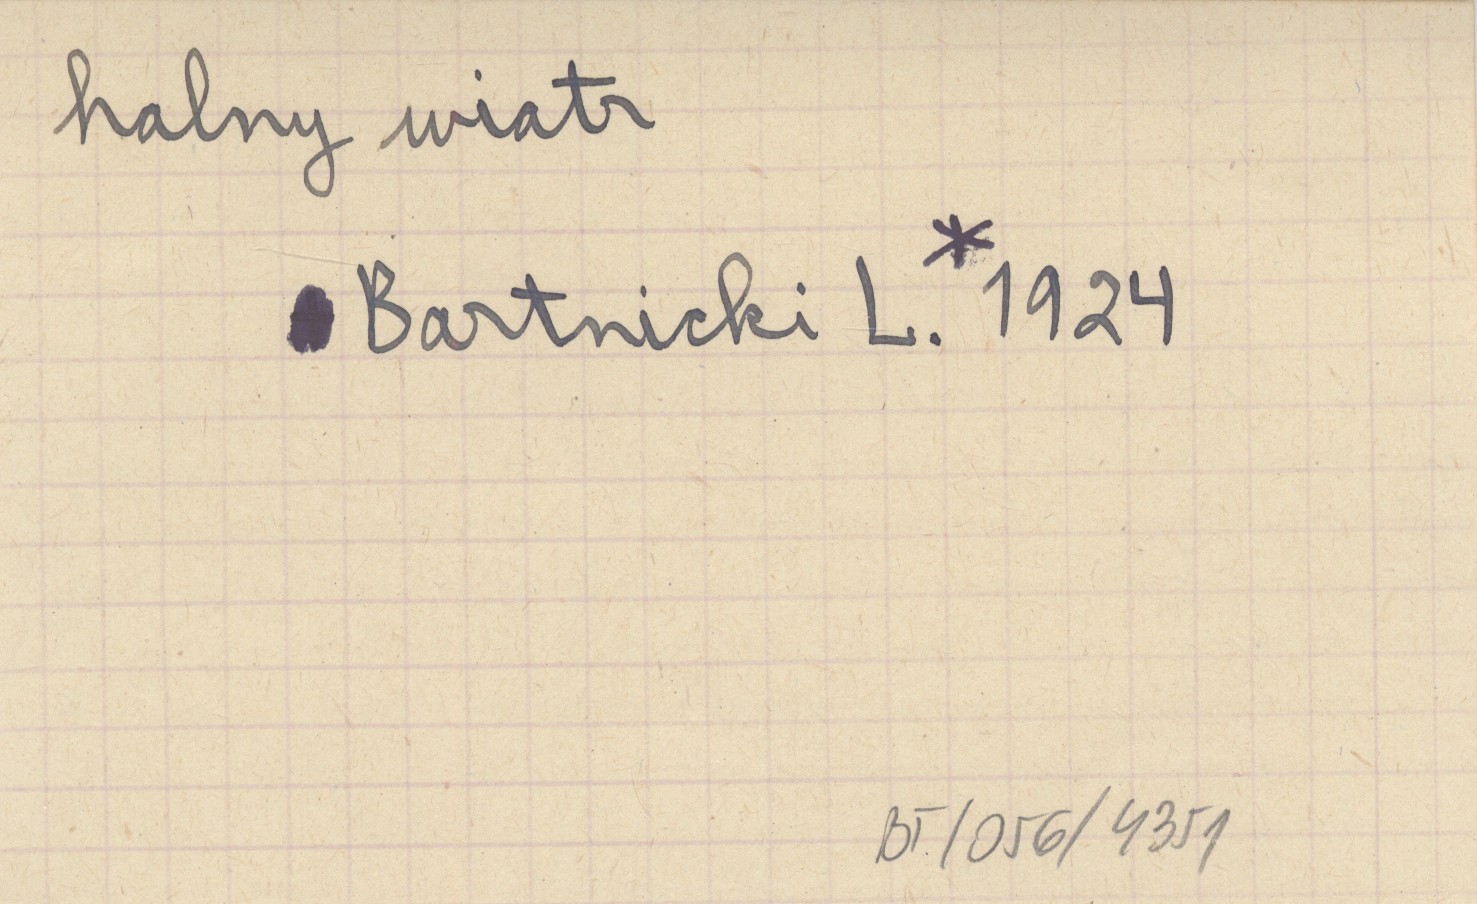 halny wiatr
● Bartnicki L.* 1924
BT/056/4351